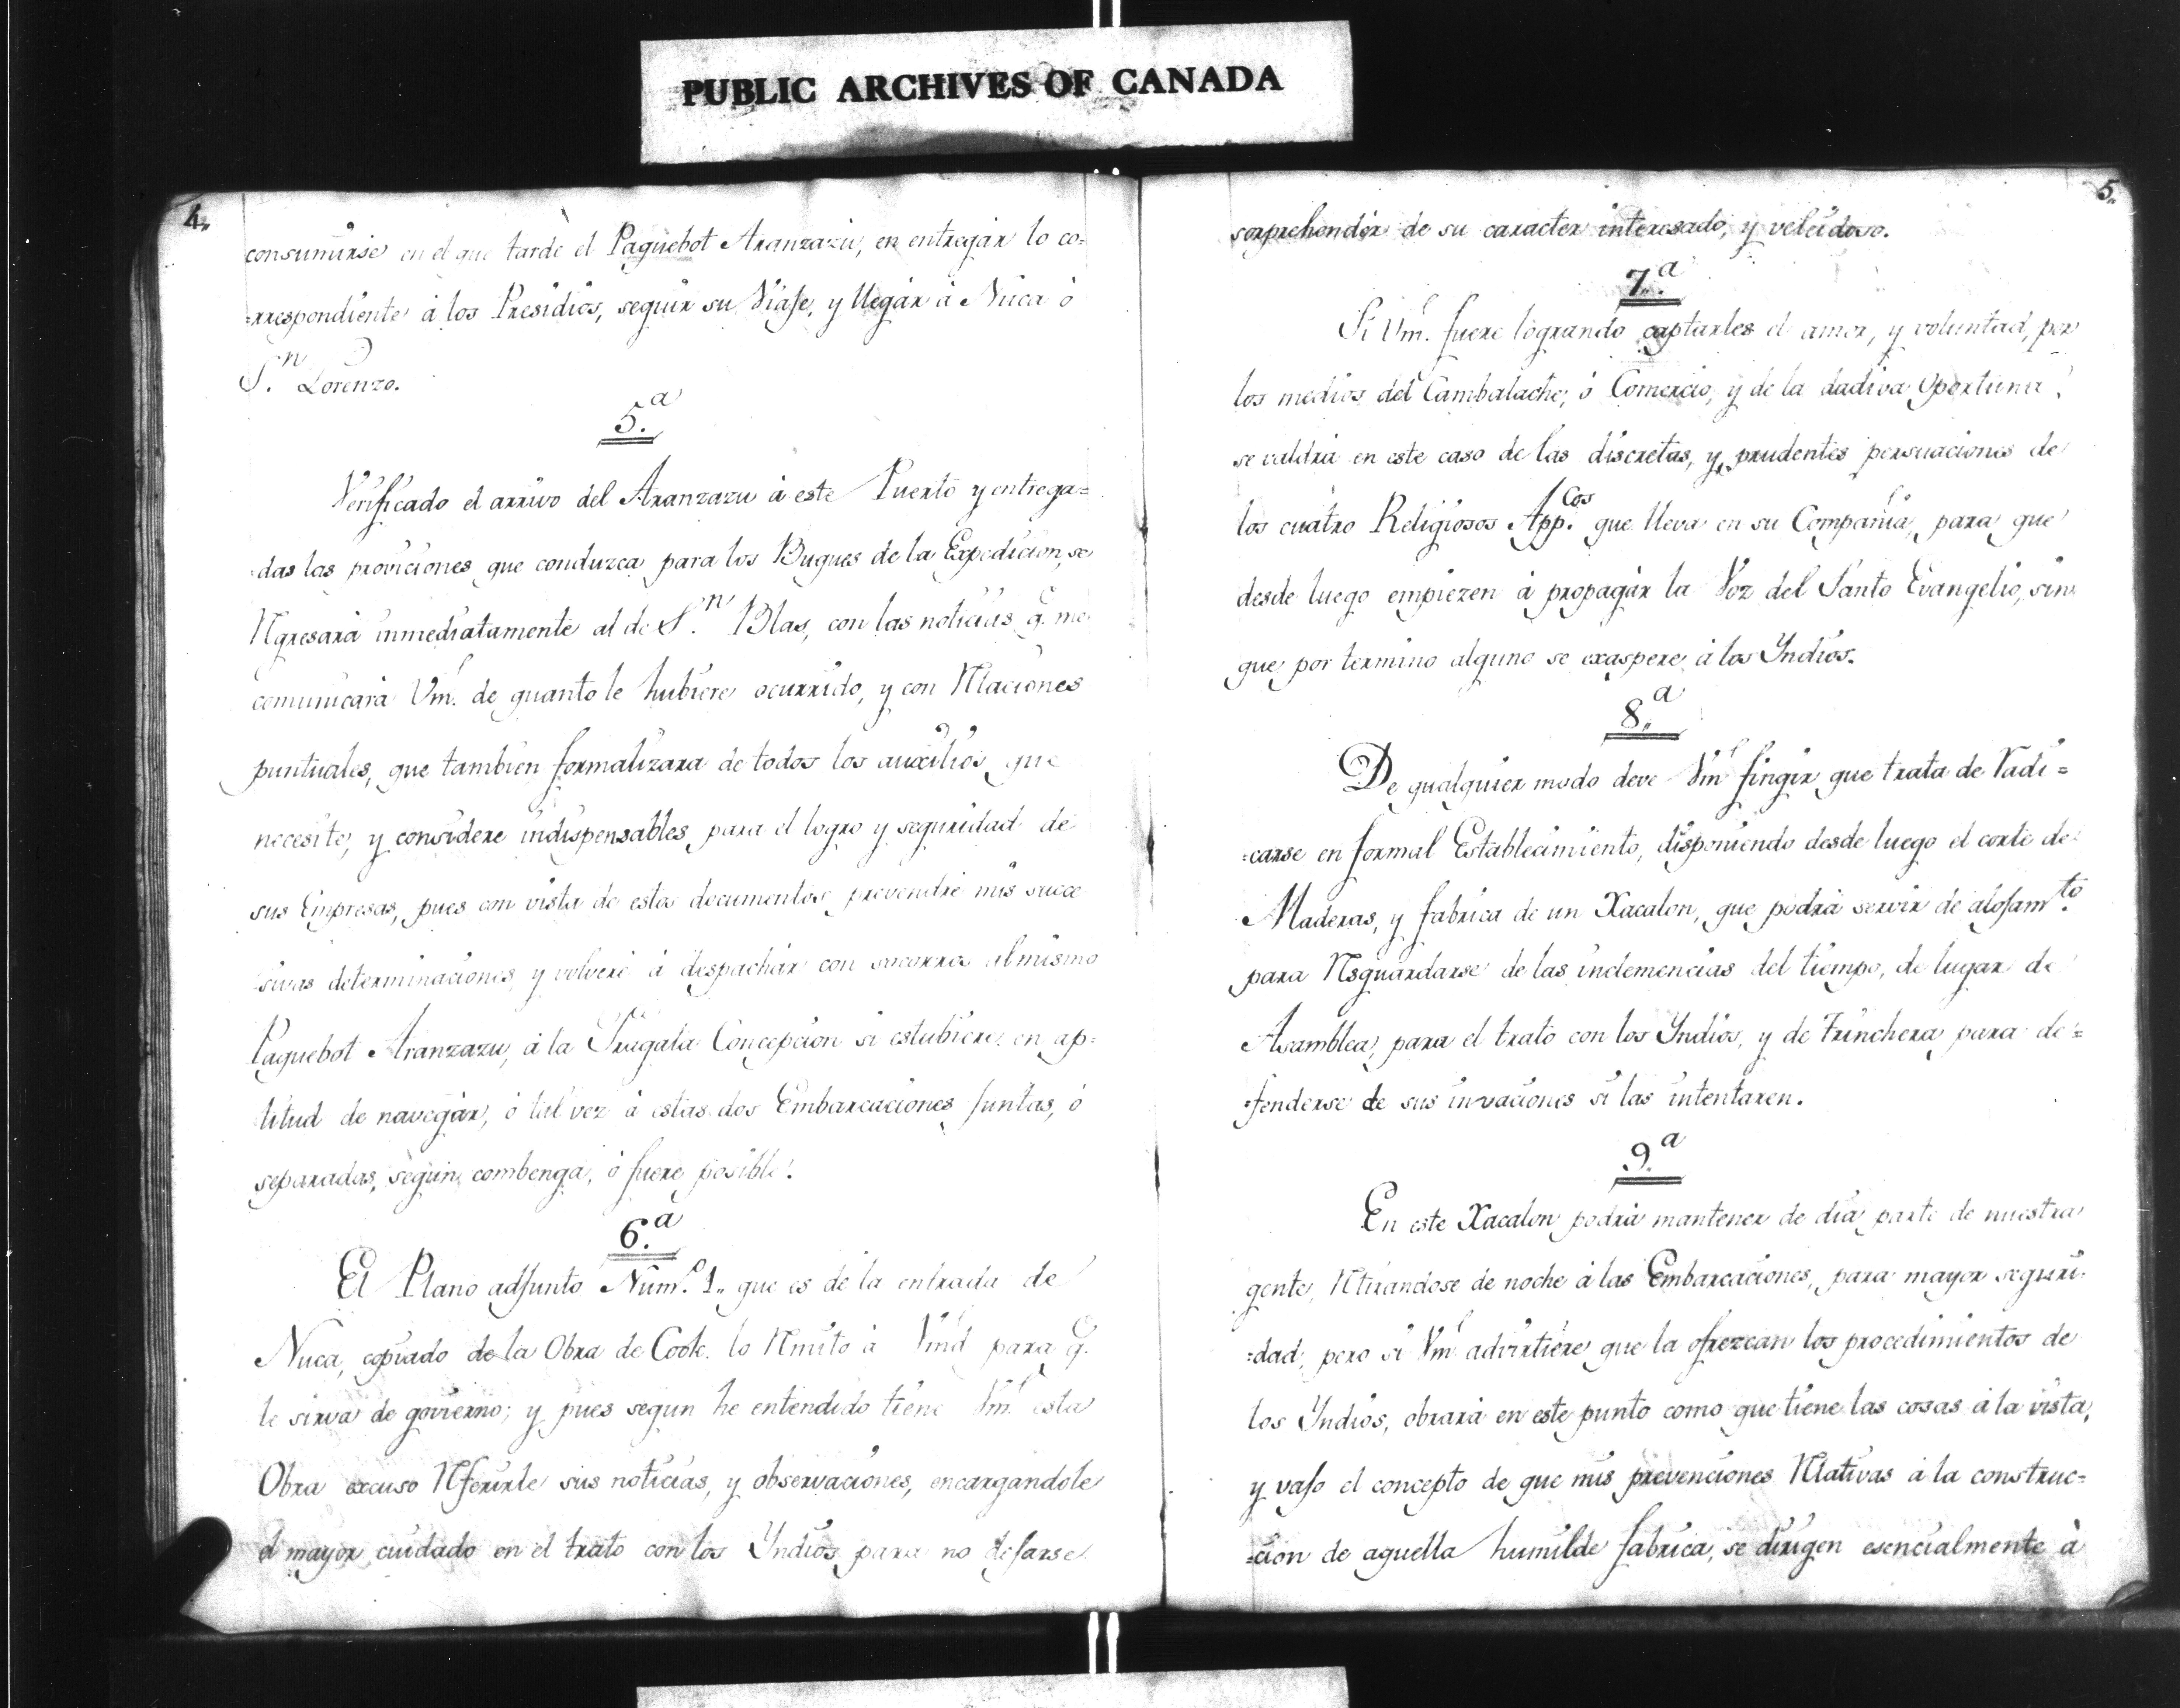 PUBLIC ARCHIVES OF CANADA
4,,
consumirse en el que tarde el Paquebot Aranzazu, en entregàr lo co=
=rrespondiente à los Presidios, seguir su Viaje, y llegàr à Nuca ò
S.n Lorenzo.
5.a
Verificado el arrivo del Aranzazu à este Puerto y entrega=
=das las proviciones que conduzca para los Buques de la Expedicion, se
Rgresarà inmediatamente al de S.n Blas, con las noticias q.e me
comunicarà Vm. de quanto le hubiere ocurrido, y con Rlaciones
puntuales, que tambien formalizara de todos los auxilios que
necesite, y considere indispensables para el logro y seguridad de
sus Empresas, pues con vista de estos documentos prevendrè mis succe
sivas determinaciones, y volverè à despachàr con socorros al mismo
Paquebot Aranzazu, à la Fragata Concepcion si estubiere en ap=
titud de navegàr, ò tal vez à estas dos Embarcaciones juntas, ò
separadas, segun combenga, ò fuere posible.
6.a
El Plano adjunto Num.o 1,, que es de la entrada de
Nuca, copiado de la Obra de Cook. lo Rmito à Vmd para q.e
le sirva de govierno; y pues segun he entendido tiene Vm. esta
Obra excuso Rferirle sus noticias, y observaciones, encargandole
el mayor cuidado en el trato con los Yndios para no dejarse
5,,
sorprehendèr de su caracter interesado, y veleidoso.
7,,a
Si Vm. fuere lògrando captarles el amor, y voluntad, por
los medios del Cambalache, ò Comercio, y de la dadiva oportuna,
se valdrà en este caso de las discretas, y prudentes persuaciones de
los cuatro Religiosos App.cos que lleva en su Compañia, para que
desde luego empiezen à propagàr la Voz del Santo Evangelio, sin
que por termino alguno se exaspere à los Yndios.
8,,a
De qualquier modo deve Vm fingir que trata de Radi=
=carse en formal Establecimiento, disponiendo desde luego el corte de
Maderas, y fabrica de un Xacalon, que podrà servir de alojam.to
para Rsguardarse de las inclemencias del tiempo, de lugar de
Asamblea, para el trato con los Yndios, y de Trinchera para de=
=fenderse de sus invaciones si las intentaren.
9.a
En este Xacalon podrà mantener de dia parte de nuestra
gente, Rtirandose de noche à las Embarcaciones, para mayor seguri=
=dad; pero si Vm advirtiere que la ofrezcan los procedimientos de
los Yndios, obrarà en este punto como que tiene las cosas à la vista,
y vajo el concepto de que mis prevenciones Rlativas à la construc=
=cion de aquella humilde fabrica, se dirigen esencialmente à